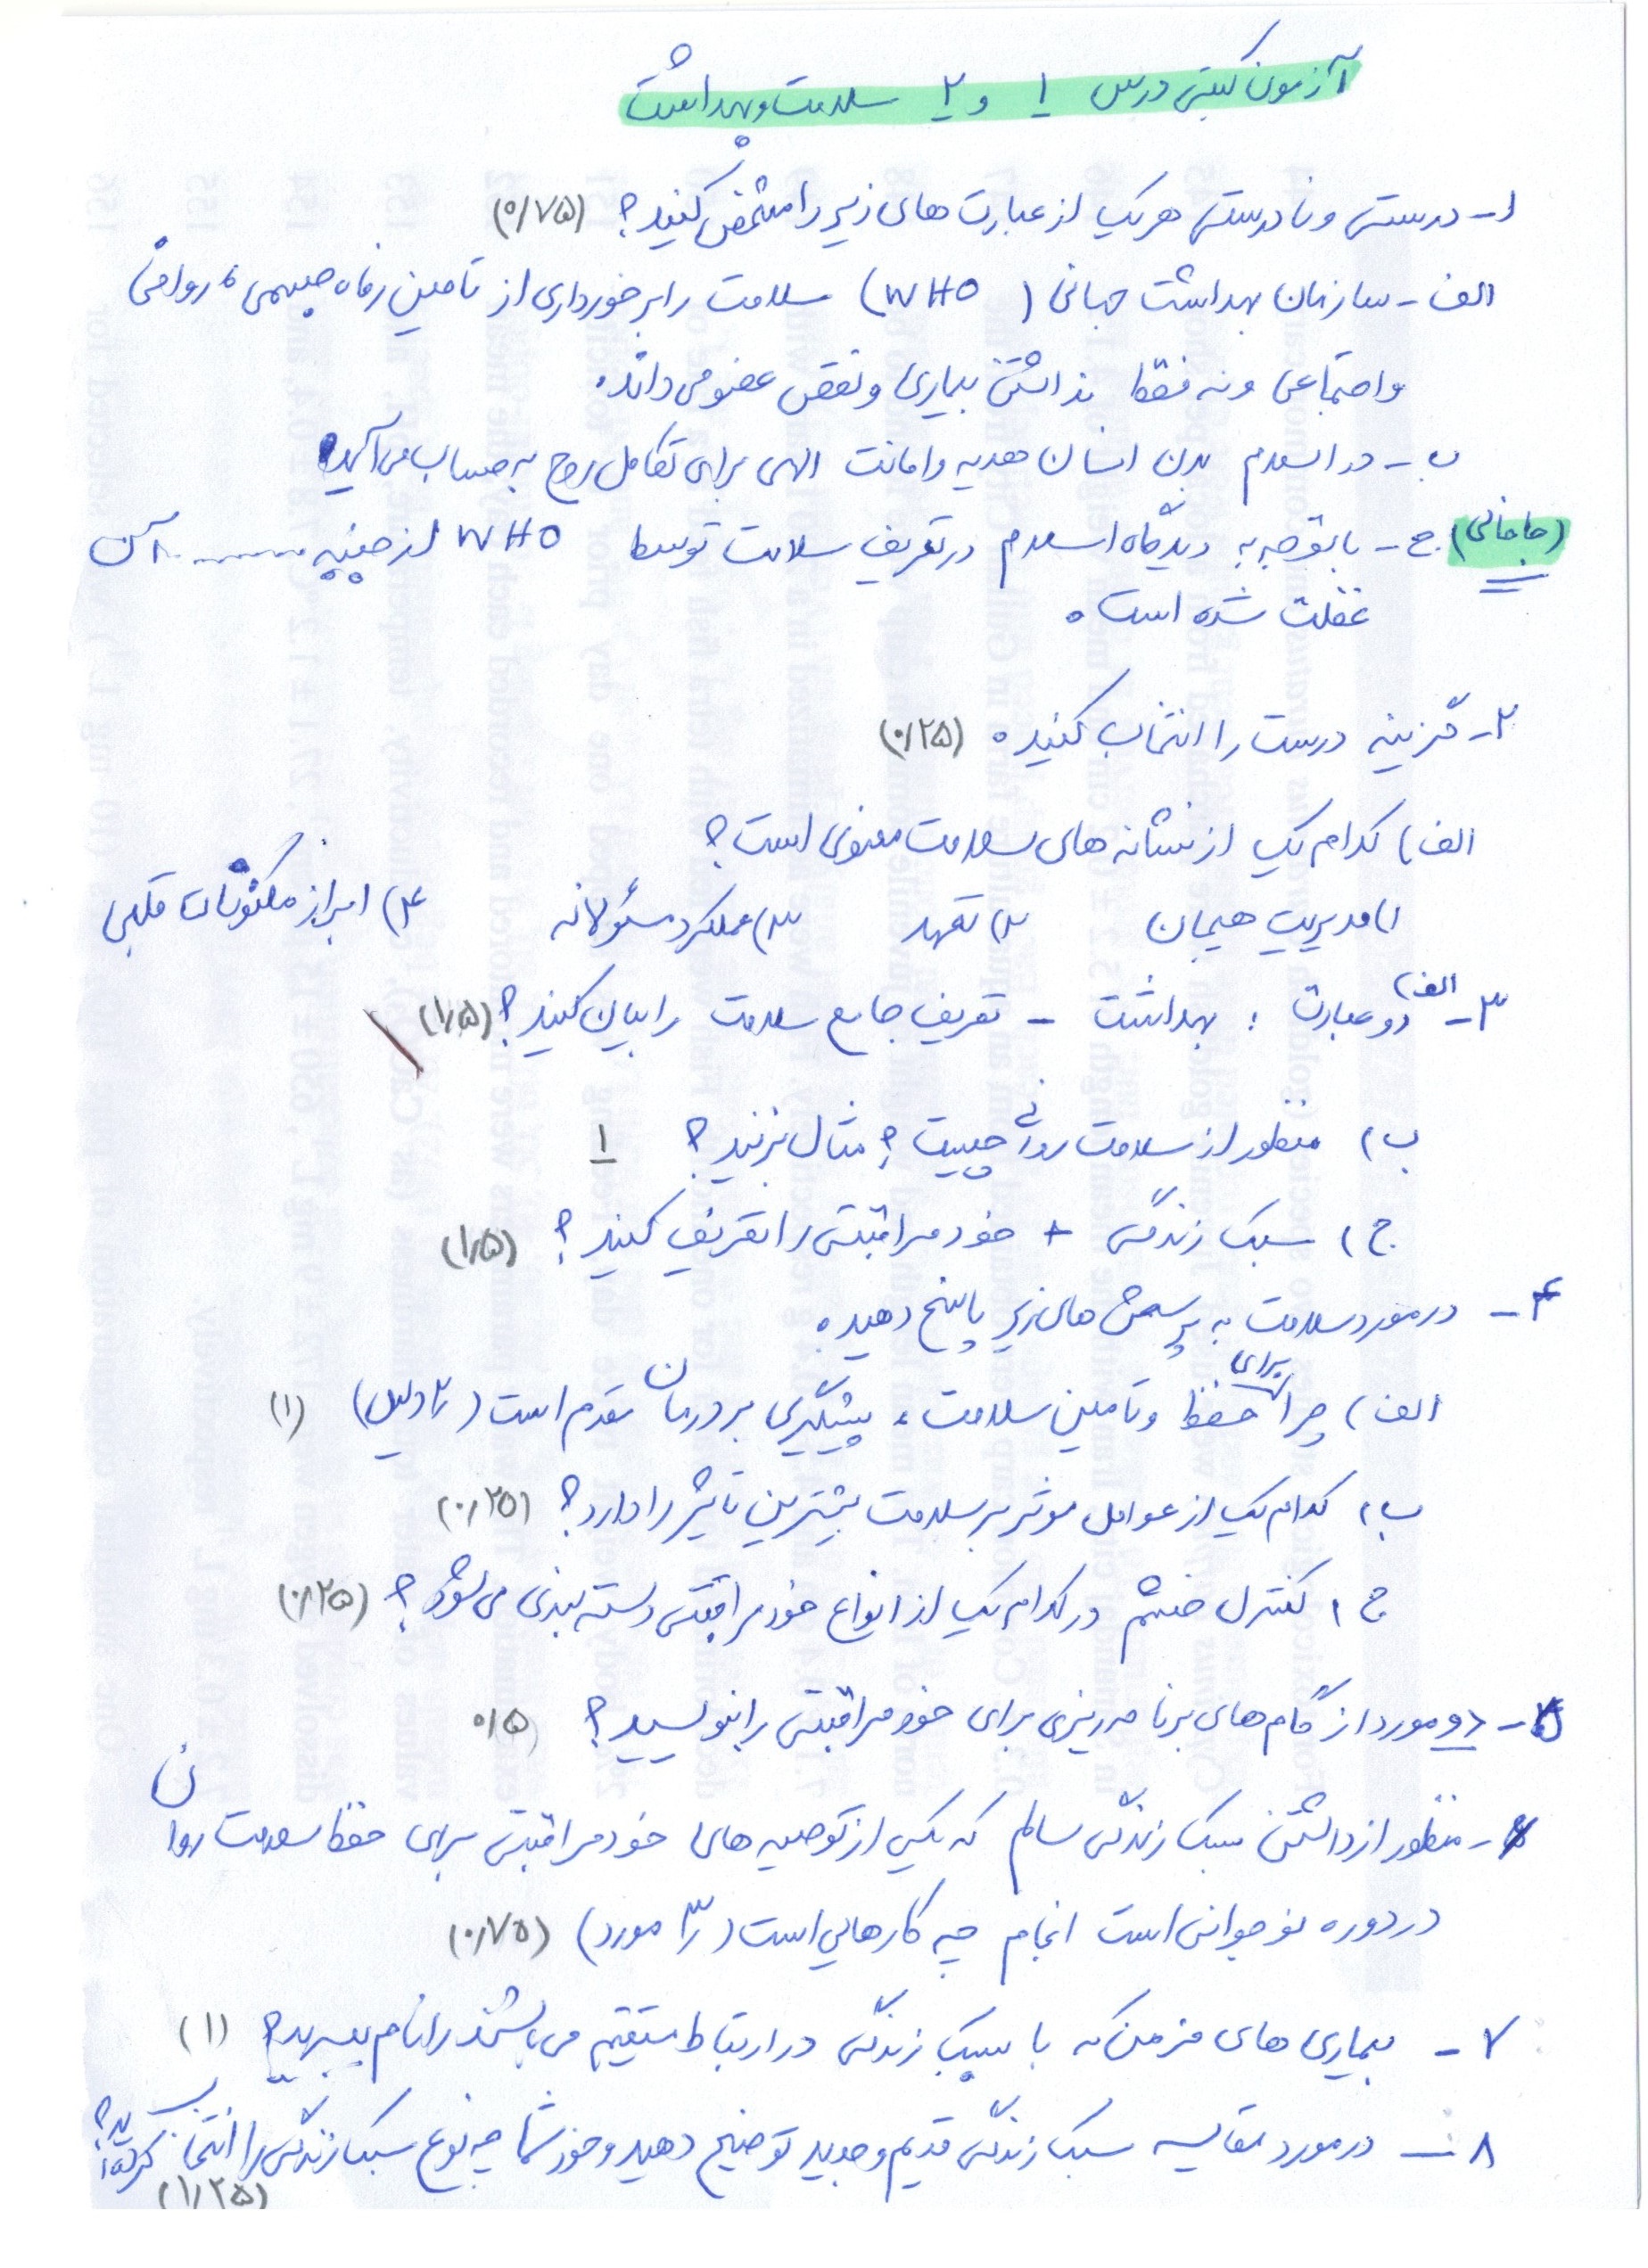 آزمون کتبی درس ۱ و ۲ سلامت و بهداشت
۱- درستی و نادرستی هر یک از عبارت های زیر را مشخص کنید؟ (۰/۷۵)
الف - سازمان بهداشت جهانی (WHO) سلامت را برخورداری از تامین رفاه جسمی، روانی
و اجتماعی و نه فقط نداشتن بیماری و نقص عضو می داند.
ب - در اسلام بدن انسان هدیه و امانت الهی برای تکامل روح به حساب می آید.
(جاخالی) ج - با توجه به دیدگاه اسلام در تعریف سلامت توسط WHO از جنبه ........ آن
غفلت شده است.
۲- گزینه درست را انتخاب کنید. (۰/۲۵)
الف) کدام یک از نشانه های سلامت معنوی است؟
۱) مدیریت هیجان ۲) تعهد ۳) عملکرد مسئولانه ۴) ابراز مکنونات قلبی
۳- الف) دو عبارت : بهداشت - تعریف جامع سلامت را بیان کنید؟ (۱/۵)
ب) منظور از سلامت روانی چیست؟ مثال بزنید؟ ۱
ج) سبک زندگی + خودمراقبتی را تعریف کنید؟ (۱/۵)
۴- در مورد سلامت به پرسش های زیر پاسخ دهید.
الف) چرا برای حفظ و تامین سلامت، پیشگیری بر درمان مقدم است (۲ دلیل) (۱)
ب) کدام یک از عوامل موثر بر سلامت بیشترین تاثیر را دارد؟ (۰/۲۵)
ج) کنترل خشم در کدام یک از انواع خودمراقبتی دسته بندی می شود؟ (۰/۲۵)
۵- دو مورد از گام های برنامه ریزی برای خودمراقبتی را بنویسید؟ ۰/۵
۶- منظور از داشتن سبک زندگی سالم که یکی از توصیه های خودمراقبتی برای حفظ سلامت روان
در دوره نوجوانی است انجام چه کارهایی است (۳ مورد) (۰/۷۵)
۷- بیماری های مزمن که با سبک زندگی در ارتباط مستقیم می باشند را نام ببرید؟ (۱)
۸- در مورد مقایسه سبک زندگی قدیم و جدید توضیح دهید و خود شما چه نوع سبک زندگی را انتخاب کرده اید؟
(۱/۲۵)